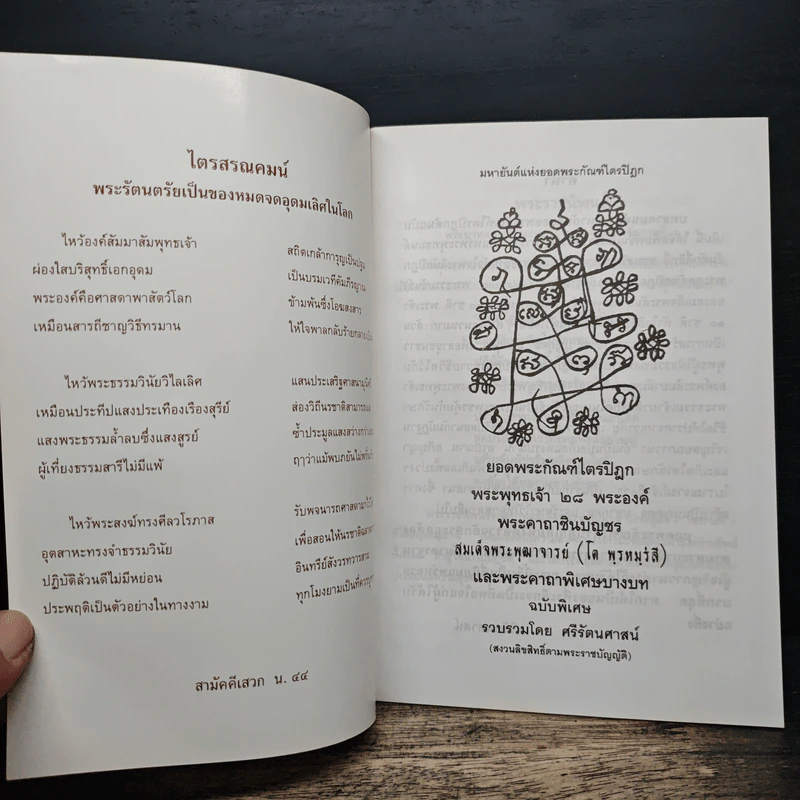 ไตรสรณคมน์
พระรัตนตรัยเป็นของหมดจดอุดมเลิศในโลก
ไหว้องค์สัมมาสัมพุทธเจ้า สถิตเกล้าการุญเป็นปฐม
ผ่องใสบริสุทธิ์เอกอุดม เป็นบรมเวทีคัมภีรญาณ
พระองค์คือศาสดาพาสัตว์โลก ข้ามพ้นซึ่งโอฆสงสาร
เหมือนสารถีชาญวิธีทรมาน ให้ใจพาลกลับร้าย
ไหว้พระธรรมวินัยวิไลเลิศ แสนประเสริฐศาสนา
เหมือนประทีปแสงประเทืองเรืองสุรีย์ ส่องวิถีนรชาติสามารถ
แสงพระธรรมล้ำลบซึ่งแสงสูรย์ ซ้ำประมูลแสงสว่าง
ผู้เที่ยงธรรมสารีไม่มีแพ้ ฤาว่าแม้พบภยันไม่
ไหว้พระสงฆ์ทรงศีลวโรภาส รับพจนารถศาสดา
อุตสาหะทรงจำธรรมวินัย เพื่อสอนให้นรชาติ
ปฏิบัติล้วนดีไม่มีหย่อน อินทรีย์สังวรทวาร
ประพฤติเป็นตัวอย่างในทางงาม ทุกโมงยามเป็นที่
สามัคคีเสวก น. ๔๔
มหายันต์แห่งยอดพระกัณฑ์ไตรปิฎก
ยอดพระกัณฑ์ไตรปิฎก
พระพุทธเจ้า ๒๘ พระองค์
พระคาถาชินบัญชร
สมเด็จพระพุฒาจารย์ (โต พฺรหฺมรํสี)
และพระคาถาพิเศษบางบท
ฉบับพิเศษ
รวบรวมโดย ศรีรัตนศาสน์
(สงวนลิขสิทธิ์ตามพระราชบัญญัติ)